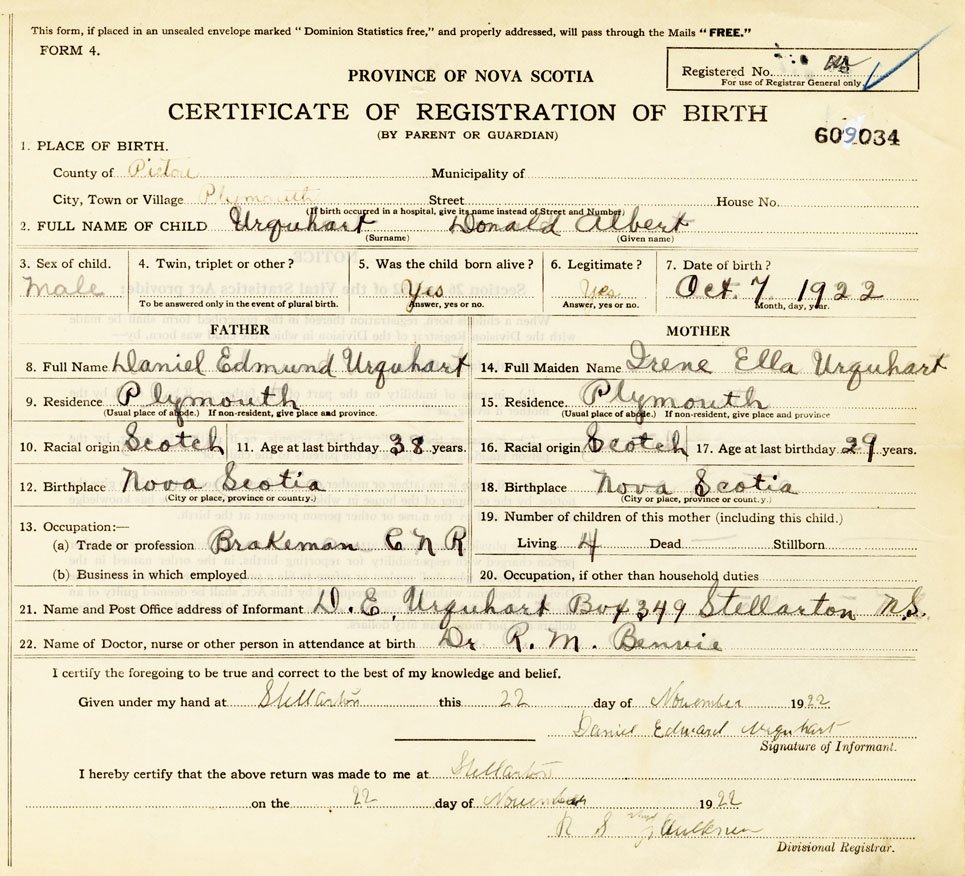 This form, if placed in an unsealed envelope marked "Dominion Statistics free," and properly addressed, will pass through the Mails "FREE."
FORM 4.
PROVINCE OF NOVA SCOTIA
Registered No.
For use of Registrar General only.
CERTIFICATE OF REGISTRATION OF BIRTH
(BY PARENT OR GUARDIAN)
609034
1. PLACE OF BIRTH.
County of Pictou Municipality of
City, Town or Village Plymouth Street House No.
(If birth occurred in a hospital, give its name instead of Street and Number)
2. FULL NAME OF CHILD Urquhart Donald Albert
(Surname) (Given name)
3. Sex of child. 4. Twin, triplet or other? 5. Was the child born alive? 6. Legitimate? 7. Date of birth?
Male Yes Yes Oct. 7 1922
To be answered only in the event of plural birth. Answer, yes or no. Answer, yes or no. Month, day, year.
FATHER MOTHER
8. Full Name Daniel Edmund Urquhart 14. Full Maiden Name Irene Ella Urquhart
9. Residence Plymouth 15. Residence Plymouth
(Usual place of abode.) If non-resident, give place and province. (Usual place of abode.) If non-resident, give place and province
10. Racial origin Scotch 11. Age at last birthday 38 years. 16. Racial origin Scotch 17. Age at last birthday 29 years.
12. Birthplace Nova Scotia 18. Birthplace Nova Scotia
(City or place, province or country.) (City or place, province or country.)
13. Occupation:— 19. Number of children of this mother (including this child.)
(a) Trade or profession Brakeman C N R Living 4 Dead Stillborn
(b) Business in which employed 20. Occupation, if other than household duties
21. Name and Post Office address of Informant D. E. Urquhart Box 349 Stellarton N.S.
22. Name of Doctor, nurse or other person in attendance at birth Dr R. M. Benvie
I certify the foregoing to be true and correct to the best of my knowledge and belief.
Given under my hand at Stellarton this 22 day of November 1922
Daniel Edward Urquhart
Signature of Informant.
I hereby certify that the above return was made to me at Stellarton
on the 22 day of November 1922
R S Faulkner
Divisional Registrar.